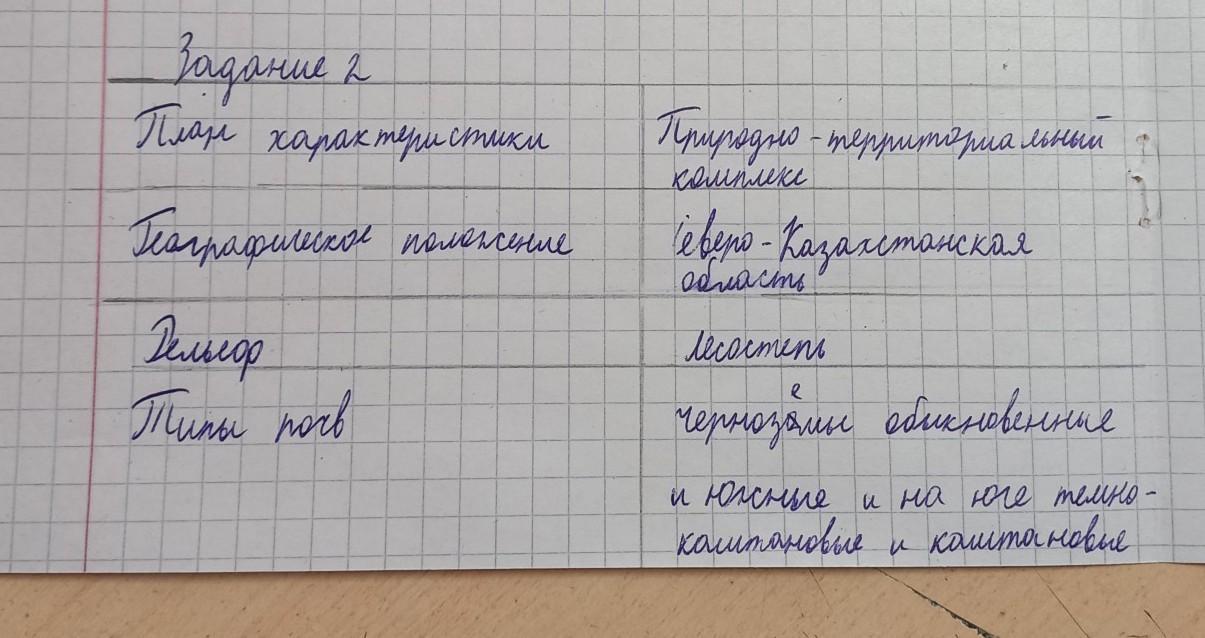 Задание 2
План характеристики
Природно-территориальный
комплекс
Географическое положение
Северо-Казахстанская
область
Рельеф
лесостепь
Типы почв
чернозёмы обыкновенные
и южные и на юге темно-
каштановые и каштановые